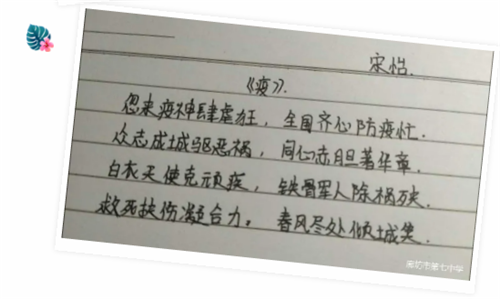 宋怡.
《疫》.
忽来疫神肆虐狂，全国齐心防疫忙.
众志成城驱恶祸，同心赤胆著华章.
白衣天使克顽疾，铁骨军人除祸殃.
救死扶伤凝合力，春风尽处倾城笑.
廊坊市第七小学